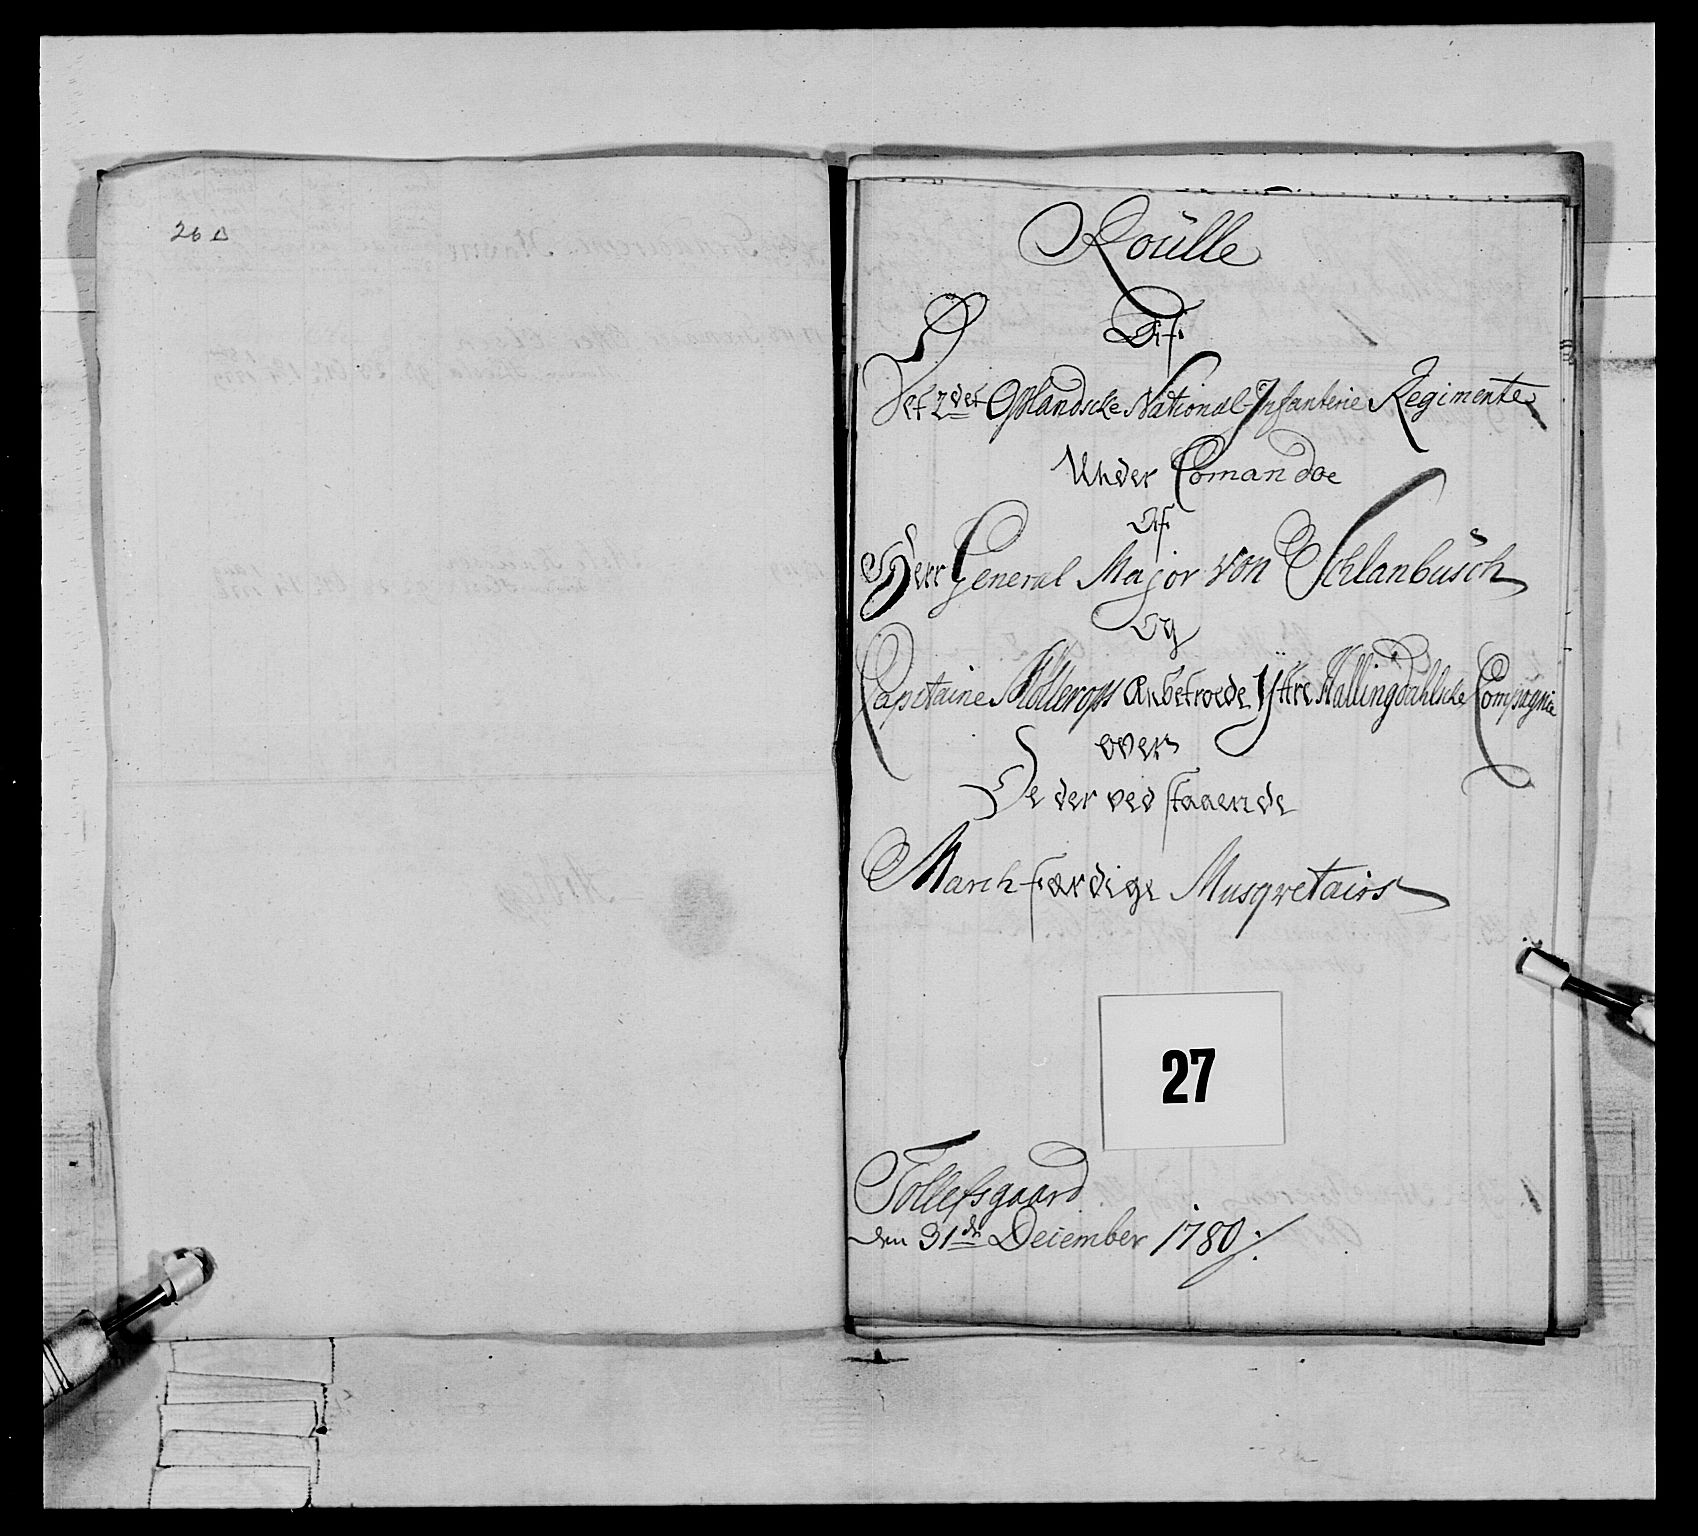 26 Δ
Roülle
Af
Det 2det Oplandscke National-Infanterie Regimente
Under Comandoe
Af
Herr General Major von Schlanbusch
Og
Capitaine Möllerops Anbetroede Yttre Hallingdahlscke Compagnie
over
De der ved staaende
March-færdige Musqvetairs
27
Tollefsgaard
den 31de December 1780